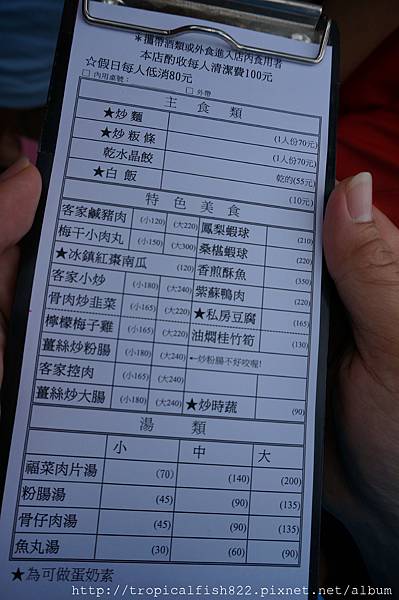 *攜帶酒類或外食進入店內食用者
本店酌收每人清潔費100元
☆假日每人低消80元
□ 內用桌號： □ 外帶
主食類
★炒麵 (1人份70元)
★炒粄條 (1人份70元)
乾水晶餃 乾的(55元)
★白飯 (10元)
特色美食
客家鹹豬肉 (小120) (大220) 鳳梨蝦球 (210)
梅干小肉丸 (小150) (大300) 桑椹蝦球 (220)
★冰鎮紅棗南瓜 (120) 香煎酥魚 (350)
客家小炒 (小180) (大240) 紫蘇鴨肉 (220)
骨肉炒韭菜 (小165) (大220) ★私房豆腐 (165)
檸檬梅子雞 (小165) (大220) 油燜桂竹筍 (130)
薑絲炒粉腸 (小180) (大240) ←炒粉腸不好咬喔!
客家控肉 (小165) (大240)
薑絲炒大腸 (小180) (大240) ★炒時蔬 (90)
湯類
小 中 大
福菜肉片湯 (70) (140) (200)
粉腸湯 (45) (90) (135)
骨仔肉湯 (45) (90) (135)
魚丸湯 (30) (60) (90)
★為可做蛋奶素
http://tropicalfish822.pixnet.net/album